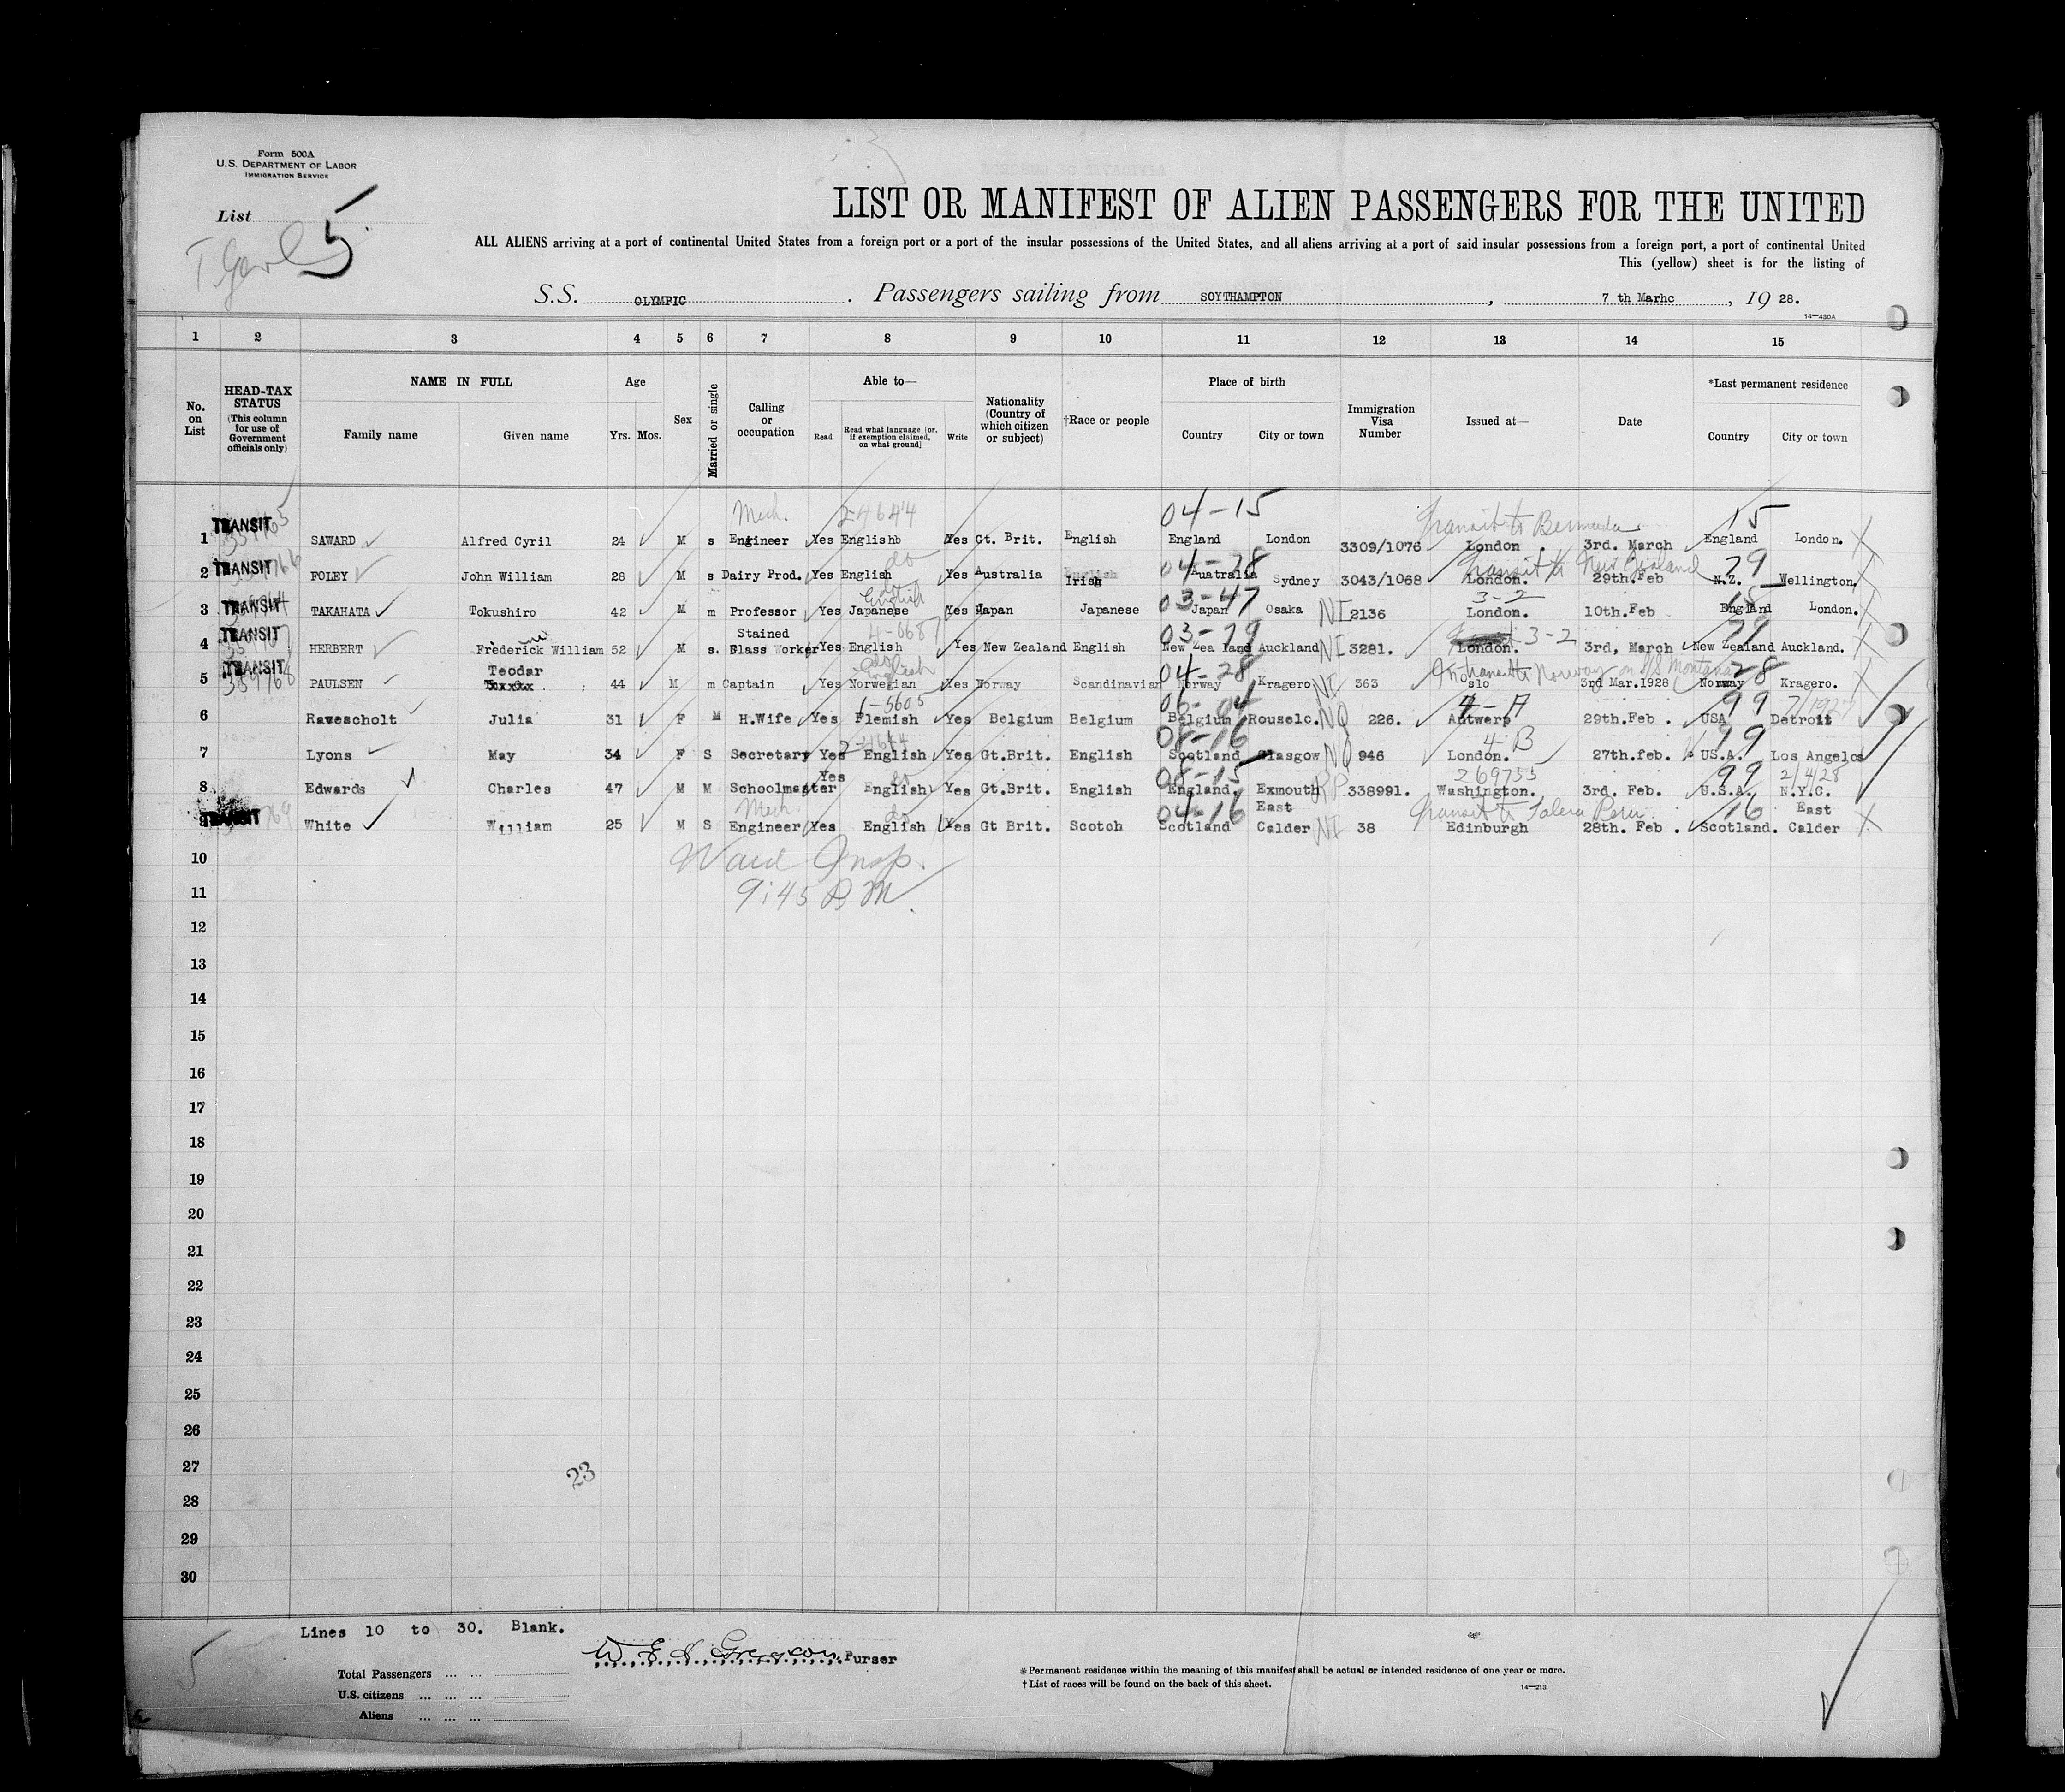 Form 500A
U.S. DEPARTMENT OF LABOR
IMMIGRATION SERVICE
List 5
LIST OR MANIFEST OF ALIEN PASSENGERS FOR THE UNITED
ALL ALIENS arriving at a port of continental United States from a foreign port or a port of the insular possessions of the United States, and all aliens arriving at a port of said insular possessions from a foreign port, a port of continental United
This (yellow) sheet is for the listing of
S.S. OLYMPIC. Passengers sailing from SOYTHAMPTON, 7 th Marhc, 19 28.
14—430A
1 2 3 4 5 6 7 8 9 10 11 12 13 14 15
No. on List
HEAD-TAX STATUS (This column for use of Government officials only)
NAME IN FULL
Family name Given name
Age
Yrs. Mos.
Sex
Married or single
Calling or occupation
Able to—
Read Read what language [or, if exemption claimed, on what ground] Write
Nationality (Country of which citizen or subject)
†Race or people
Place of birth
Country City or town
Immigration Visa Number
Issued at—
Date
*Last permanent residence
Country City or town
Mech. 2-4644 04-15 Transit to Bermuda 15
1 TRANSIT SAWARD Alfred Cyril 24 M s Engineer Yes Englishb Yes Gt. Brit. English England London 3309/1076 London 3rd. March England London.
do 04-28 Transit to New Zealand 29
2 TRANSIT FOLEY John William 28 M s Dairy Prod. Yes English Yes Australia Irish Australia Sydney 3043/1068 London. 29th.Feb N.Z. Wellington.
English 03-47 3-2 15
3 TRANSIT TAKAHATA Tokushiro 42 M m Professor Yes Japanese Yes Japan Japanese Japan Osaka NI 2136 London. 10th.Feb England London.
Stained 03-29 3-2 29
4 TRANSIT HERBERT Frederick William 52 M s. Glass Worker Yes English Yes New Zealand English New Zealand Auckland NI 3281. London. 3rd, March New Zealand Auckland.
Teodar English 04-28 28
5 TRANSIT PAULSEN 44 M m Captain Yes Norwegian Yes Norway Scandinavian Norway Kragero NI 363 slo 3rd Mar.1928 Norway Kragero.
1-5605 06-04 4-A 99
6 Ravescholt Julia 31 F M H.Wife Yes Flemish Yes Belgium Belgium Belgium Rouselc. NQ 226. Antwerp 29th.Feb . USA Detroit
2-4644 08-16 4-B 99
7 Lyons May 34 F S Secretary Yes English Yes Gt.Brit. English Scotland Glasgow NQ 946 London. 27th.feb. US.A. Los Angelos
Yes do 08-15 269755 99 2/4/28
8 Edwards Charles 47 M M Schoolmaster English Yes Gt.Brit. English England. Exmouth RP 338991. Washington. 3rd. Feb. U.S.A. N.Y.C.
Mech do 04-16 East Transit to Talera Peru 16 East
TRANSIT White William 25 M S Engineer Yes English Yes Gt Brit. Scotch Scotland Calder NI 38 Edinburgh 28th. Feb . Scotland. Calder
10 Ward Insp.
11 9:45 P M.
12
13
14
15
16
17
18
19
20
21
22
23
24
25
26
27 23
28
29
30
Lines 10 to 30. Blank.
Purser
Total Passengers ... ...
U.S. citizens ... ... ...
Aliens ... ... ...
*Permanent residence within the meaning of this manifest shall be actual or intended residence of one year or more.
†List of races will be found on the back of this sheet.
14—213
5